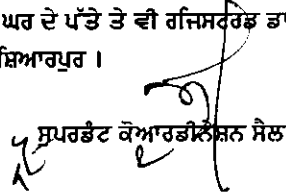 ਘਰ ਦੇ ਪੱਤੇ ਤੇ ਵੀ ਰਜਿਸਟਰਡ ਡਾ
ਸ਼ਿਆਰਪੁਰ ।
ਸੁਪਰਡੰਟ ਕੋਆਰਡੀਨੇਸ਼ਨ ਸੈਲ